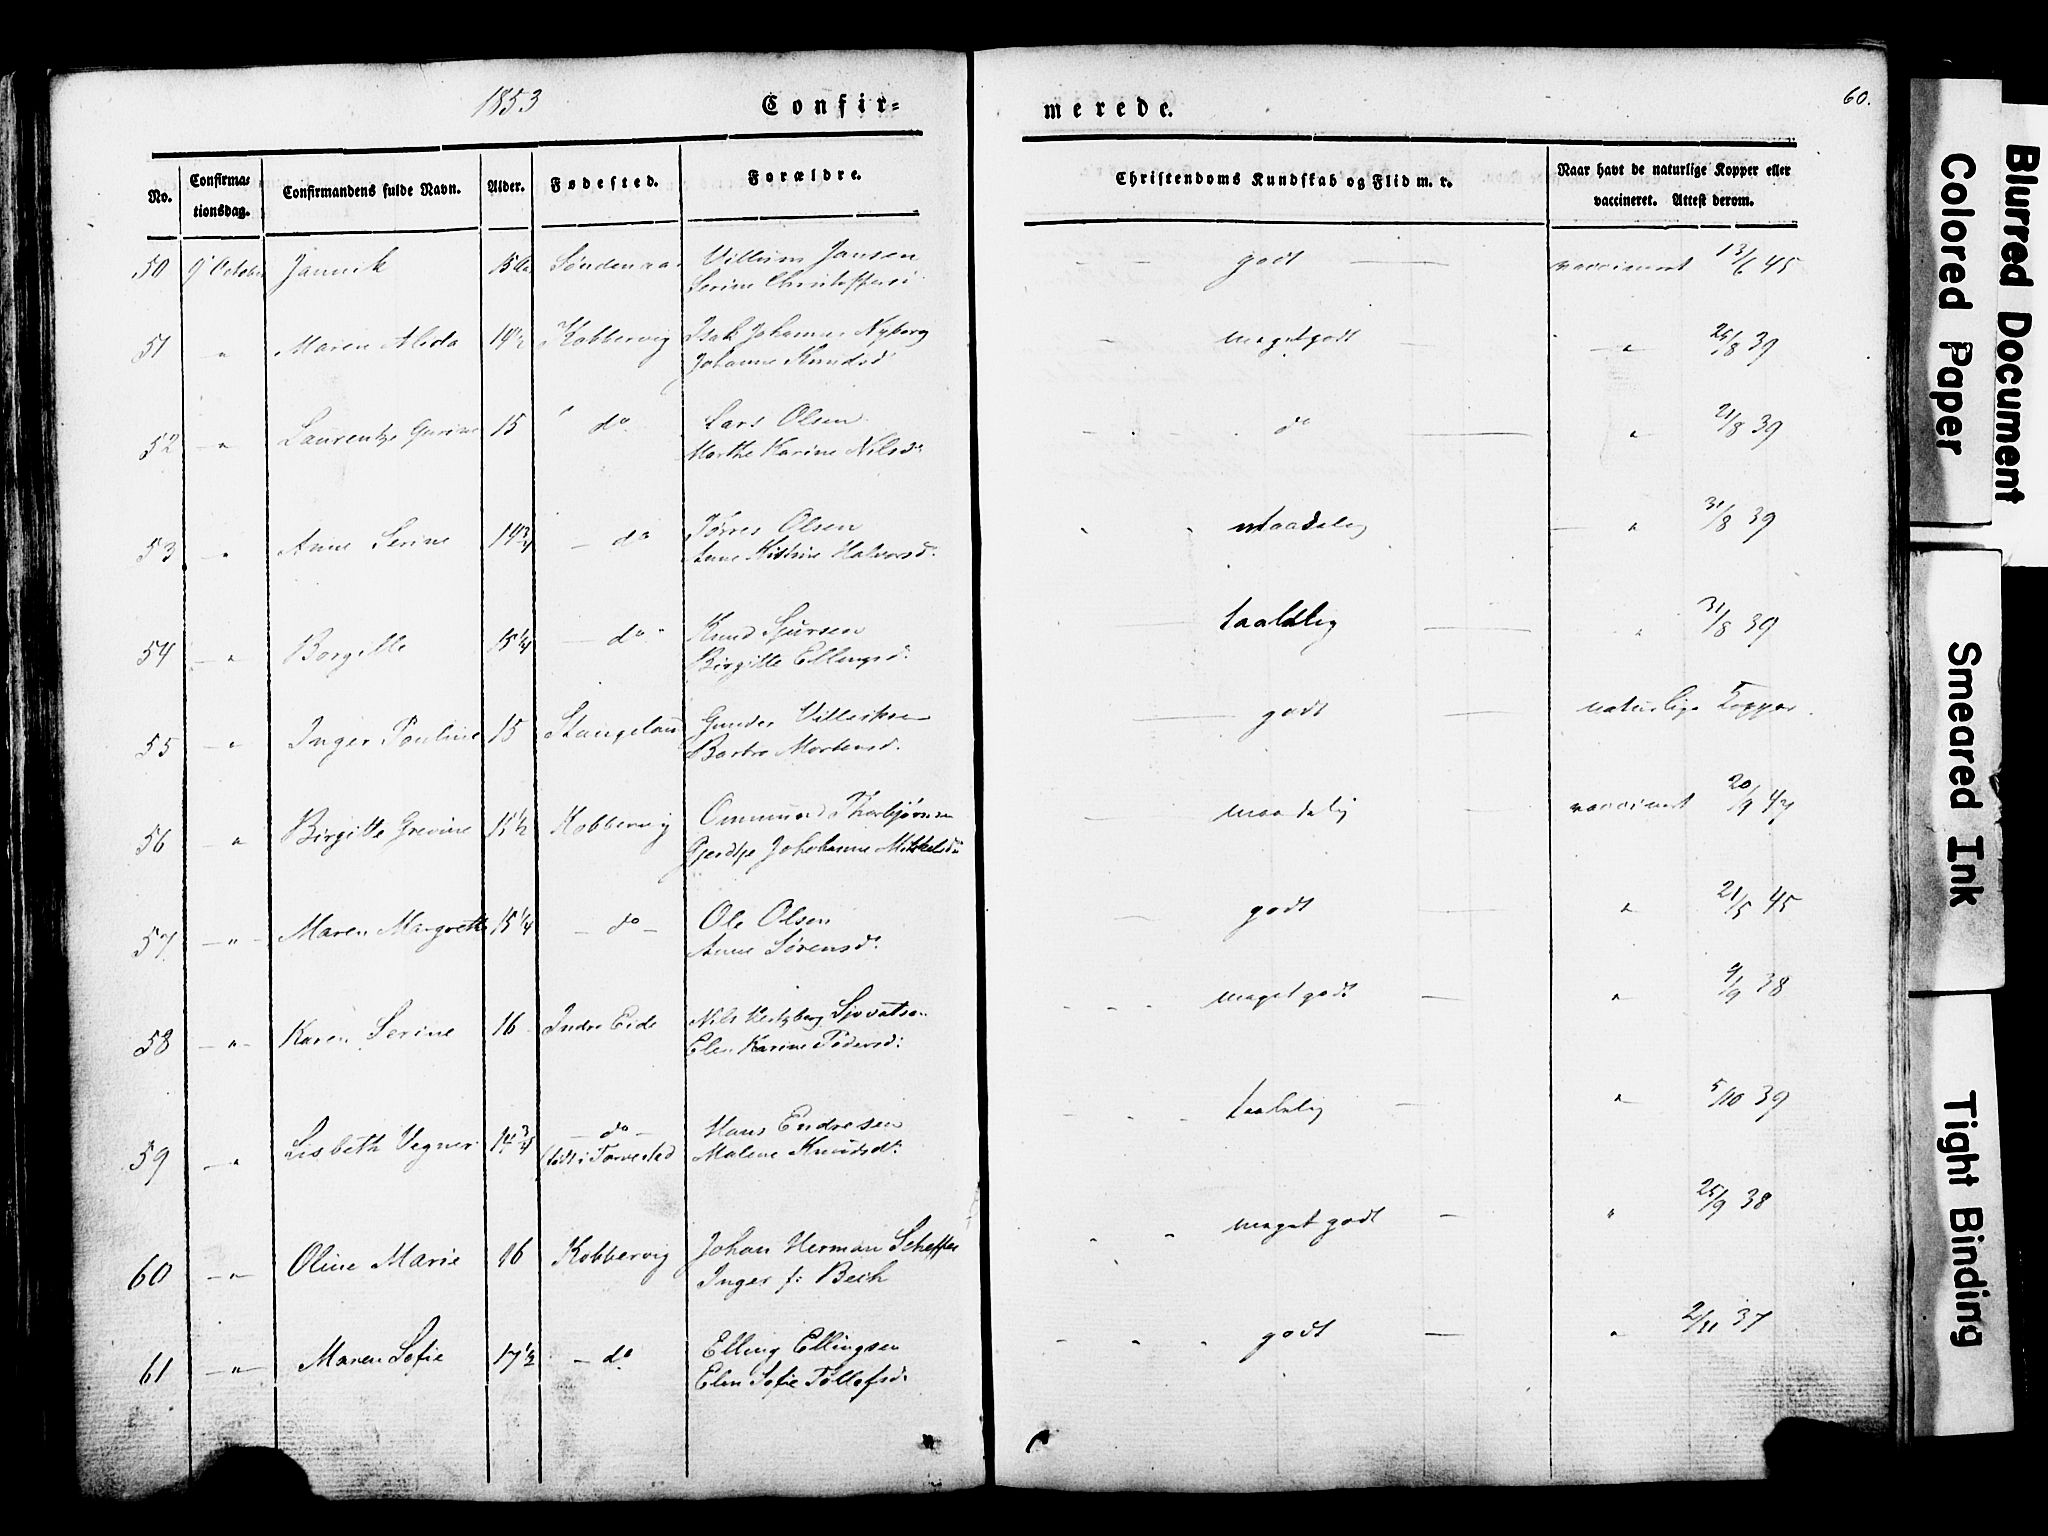 1853
Confir=
merede.
60.
No.
Confirma=
tionsdag.
Confirmandens fulde Navn.
Alder.
Fødested.
Forældre.
Christendoms Kundskab og Flid m. v.
Naar havt de naturlige Kopper eller
vaccineret. Attest derom.
50 9 October Jannik Villum Jansen godt vaccineret 13/6 45
Serine
51 " Maren Alida 14½ Kobbervig Isak Johannes Nyborg meget godt " 25/8 39
Johanne Knudsd
52 " Laurentze Gurine 15 do Lars Olsen do " 21/8 39
Marthe Karine Nilsd:
53 " Anne Serine 14¾ do Tørres Olsen maadelig " 31/8 39
Anne Kistine Halvorsd:
54 " Borgitte 15¼ do Knud Sjursen taalelig " 31/8 39
Birgitte Ellingsd:
55 " Inger Pouline 15 Stangeland Gunder godt naturlige Kopper.
Bartra Mortensd.
56 " Birgitte Grevine 15½ Kobbervig Ommund Thorbjørnsen maadelig vaccineret 20/9 47
Johanne Mikkelsd:
57 " Maren Margrethe 15¼ do Ole Olsen godt " 21/5 45
Anne Sørensd:
58 " Karen Serine 16 Indre Eide Nils Hertzberg meget godt " 9/9 38
Elen Karine Pedersd:
59 " Lisbeth Vegner 14¾ do Hans Endresen taalelig " 5/10 39
(født i Torvestad Malene Knudsd:
60 " Oline Marie 16 Kobbervig Johan Herman Scheffer meget godt " 25/9 38
Inger f: Bech
61 " Maren Sofie 17½ do Elling Ellingsen godt " 2/11 37
Elen Sofie Tollefsd:
Blurred Document
Colored Paper
Smeared Ink
Tight Binding